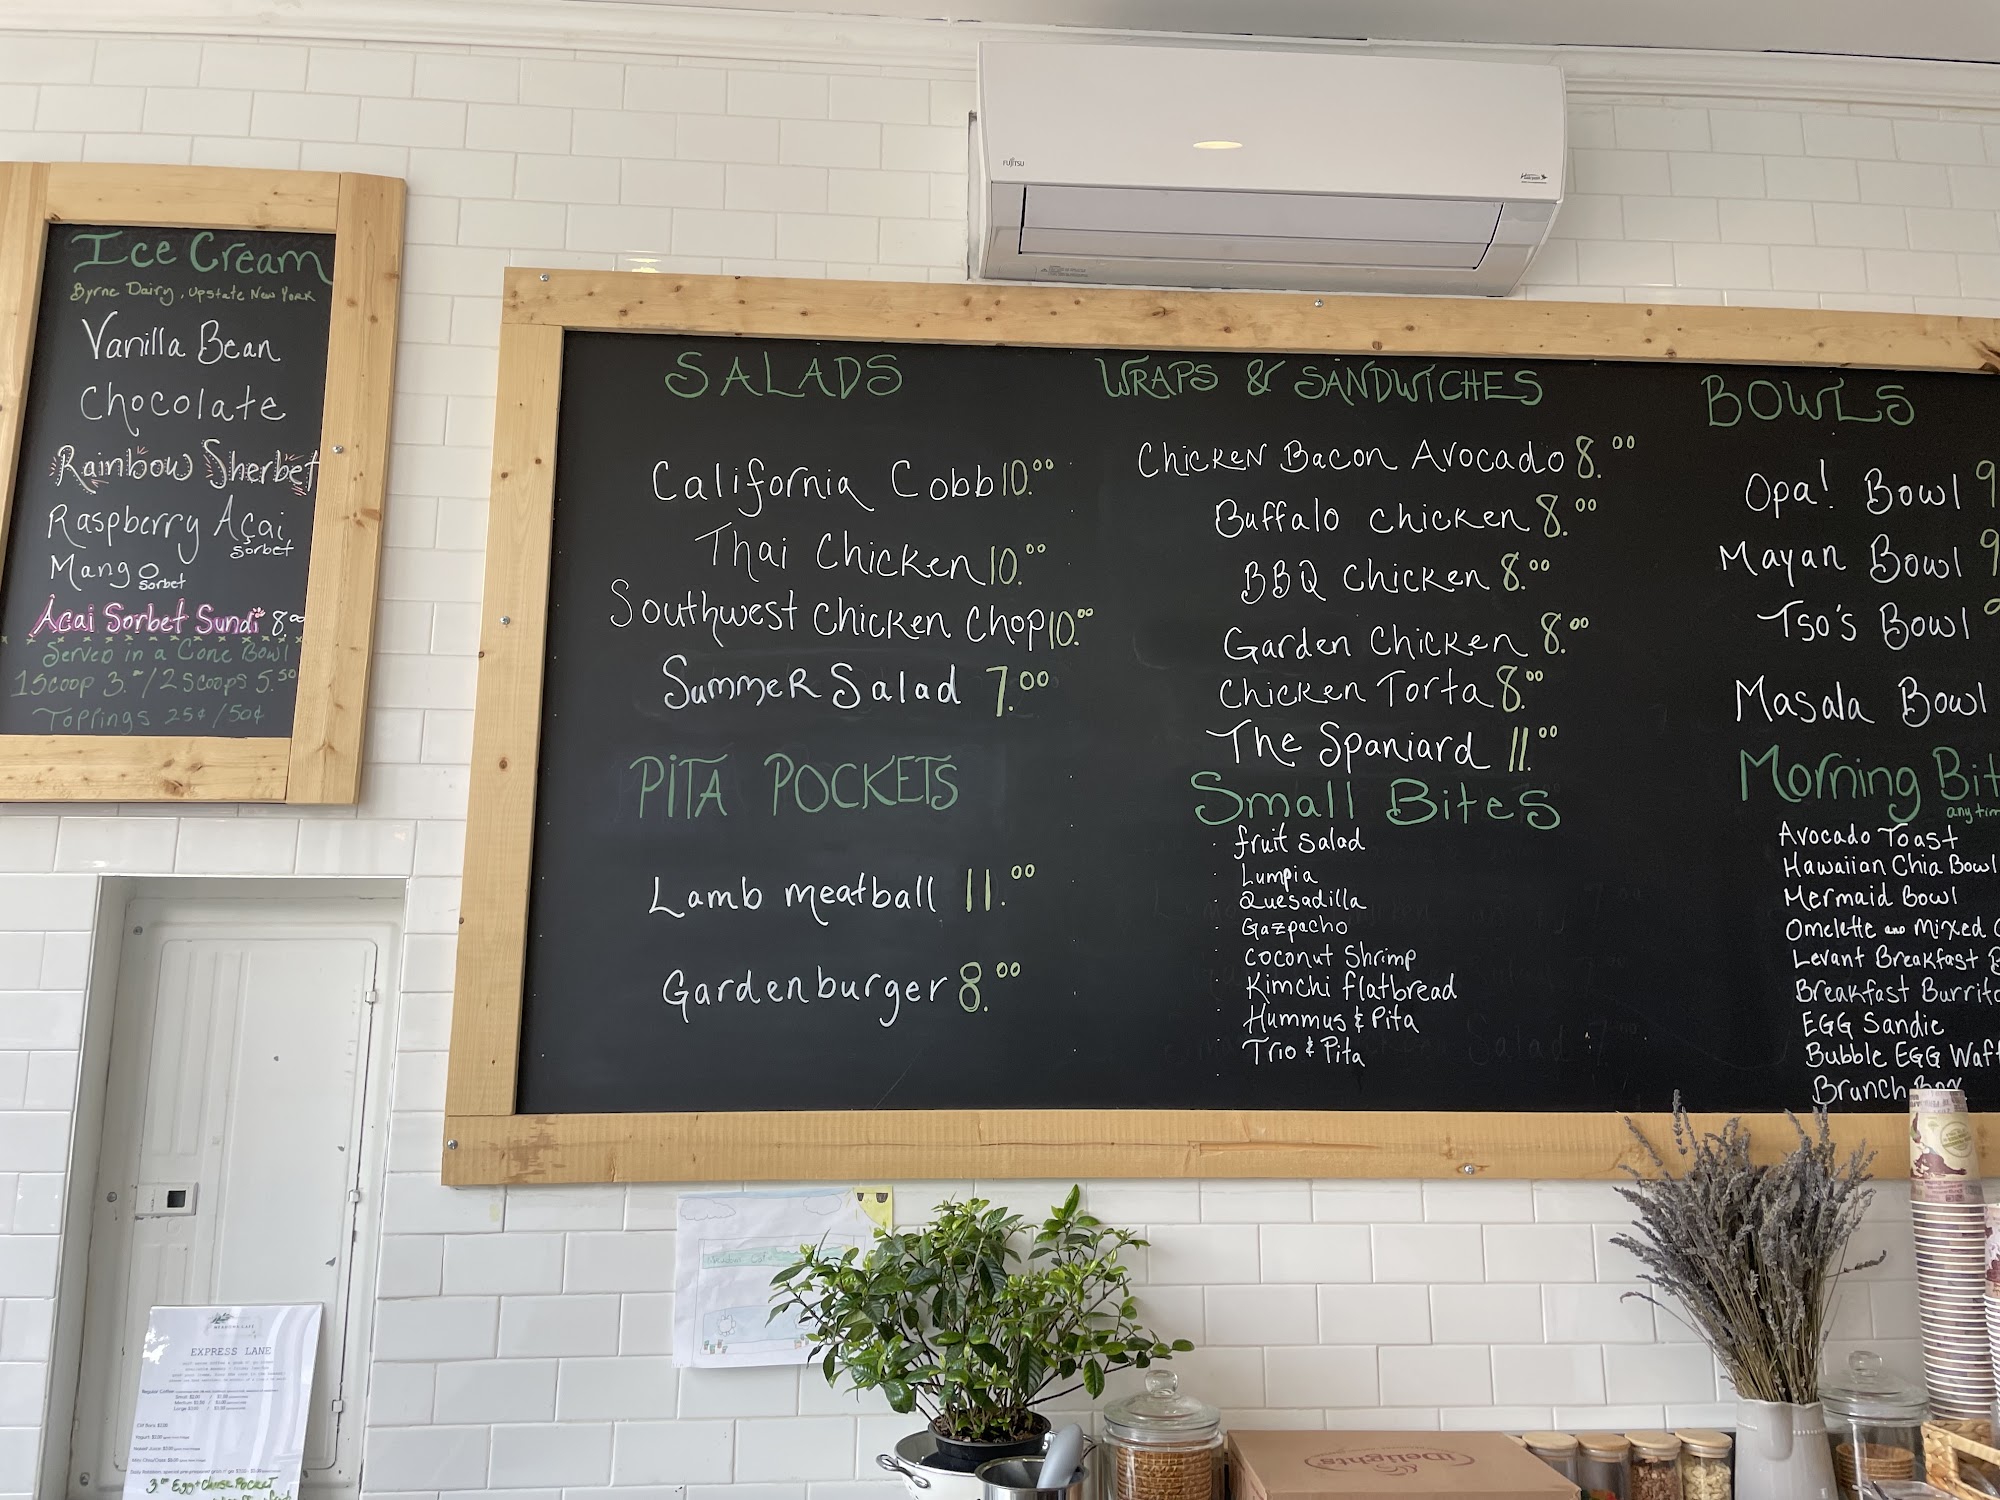 Ice Cream
Byrne Dairy, Upstate New York
Vanilla Bean
Chocolate
Rainbow Sherbet
Raspberry Açai
sorbet
Mango
sorbet
Açai Sorbet Sundi 8.00
Served in a Cone Bowl
1 Scoop 3. / 2 Scoops 5.50
Toppings 25¢ / 50¢
SALADS
California Cobb 10.00
Thai Chicken 10.00
Southwest Chicken Chop 10.00
Summer Salad 7.00
PITA POCKETS
Lamb meatball 11.00
Gardenburger 8.00
WRAPS & SANDWICHES
Chicken Bacon Avocado 8.00
Buffalo Chicken 8.00
BBQ Chicken 8.00
Garden Chicken 8.00
Chicken Torta 8.00
The Spaniard 11.00
Small Bites
· fruit salad
· Lumpia
· Quesadilla
· Gazpacho
· Coconut Shrimp
· Kimchi flatbread
· Hummus & Pita
· Trio & Pita
BOWLS
Opa! Bowl 9
Mayan Bowl 9
Tso's Bowl 9
Masala Bowl
Morning Bit
any tim
Avocado Toast
Hawaiian Chia Bowl
Mermaid Bowl
Omelette and Mixed
Levant Breakfast
Breakfast Burrito
EGG Sandie
Bubble EGG Waff
Brunch Box
FUJITSU
EXPRESS LANE
Regular Coffee
3.00 Egg + Cheese Pocket
Delights